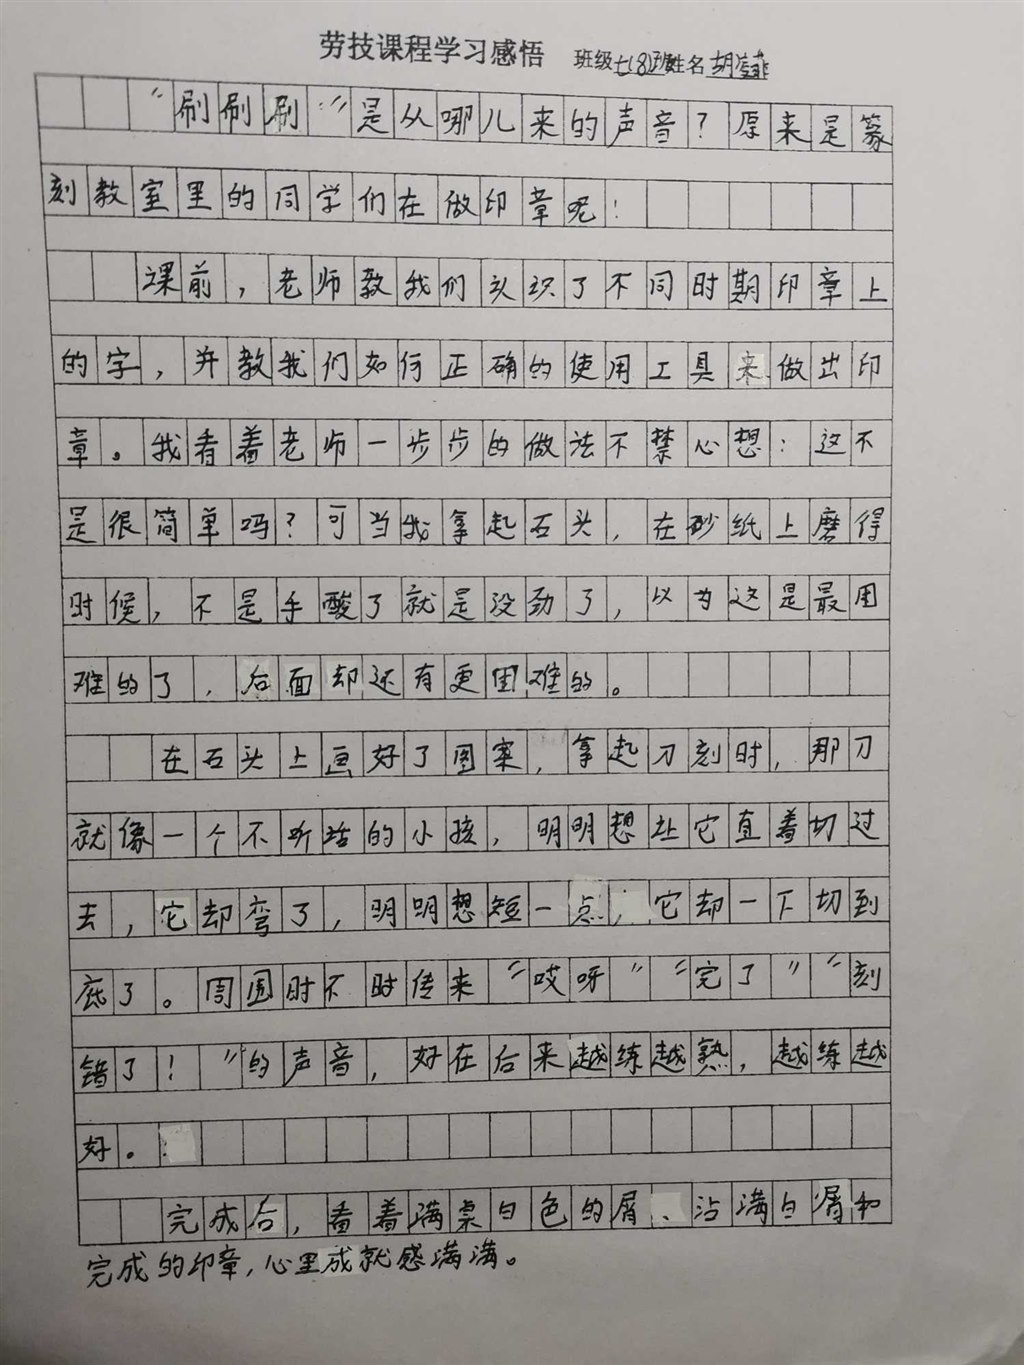 劳技课程学习感悟 班级七(8)班姓名胡
“刷刷刷…”是从哪儿来的声音?原来是篆
刻教室里的同学们在做印章呢!
课前,老师教我们认识了不同时期印章上
的字,并教我们如何正确的使用工具来做出印
章。我看着老师一步步的做法不禁心想:这不
是很简单吗?可当我拿起石头,在砂纸上磨得
时候,不是手酸了就是没劲了,以为这是最困
难的了,后面却还有更困难的。
在石头上画好了图案,拿起刀刻时,那刀
就像一个不听话的小孩,明明想让它直着切过
去,它却弯了,明明想短一点,它却一下切到
底了。周围时不时传来“哎呀”“完了”“刻
错了!”的声音,好在后来越练越熟,越练越
好。
完成后,看着满桌白色的屑、沾满白屑和
完成的印章,心里成就感满满。